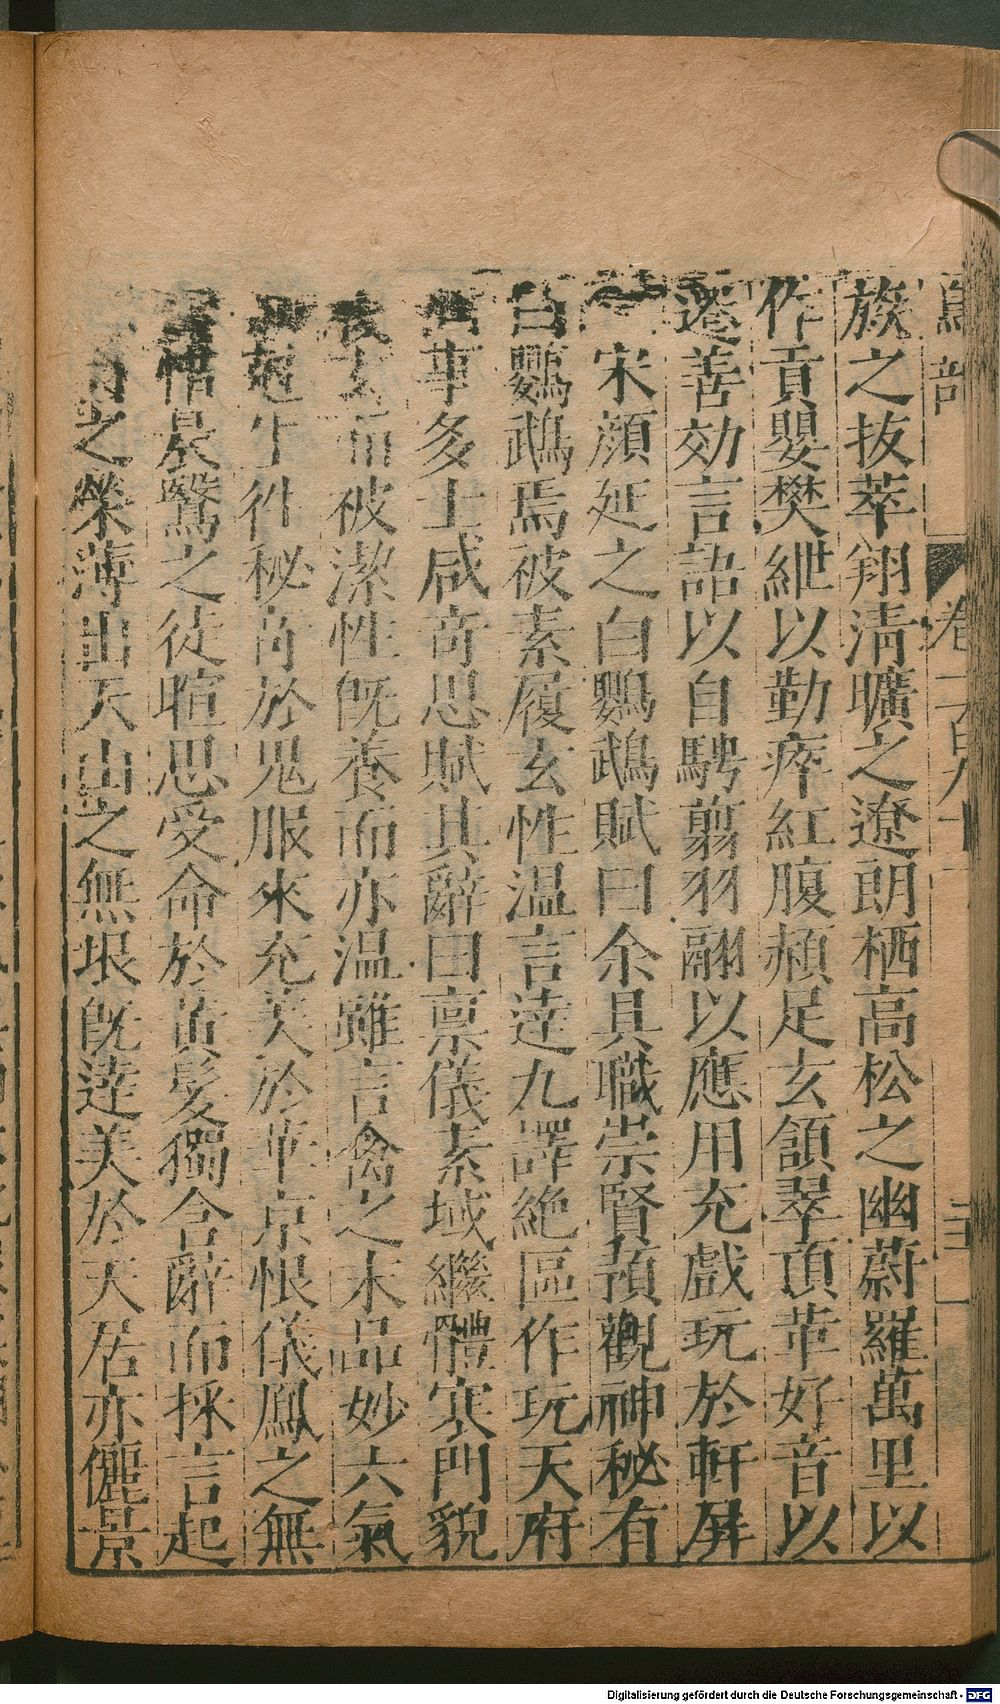 鳥部 卷九十一
族之拔萃翔清曠之遼朗栖高松之幽蔚羅萬里以
作貢嬰樊紲以勤瘁紅腹頳足玄頷翠頂革好音以
遷善効言語以自騁翦羽翮以應用充戲玩於軒屏
宋顔延之白鸚鵡賦曰余具職崇賢預觀神秘有
白鸚鵡焉被素履玄性温言達九譯絶區作玩天府
事多士咸竒思賦其辭曰禀儀素域繼軆寒門貌
玄而被潔性旣養而亦温雖言禽之末品妙六氣
生往秘竒於鬼服來充美於華京恨儀鳳之無
惜晨鷖之徒暄思受命於黄髪獨含辭而採言起
之榮薄出天山之無垠旣達美於天居亦儷景
Digitalisierung gefördert durch die Deutsche Forschungsgemeinschaft - DFG